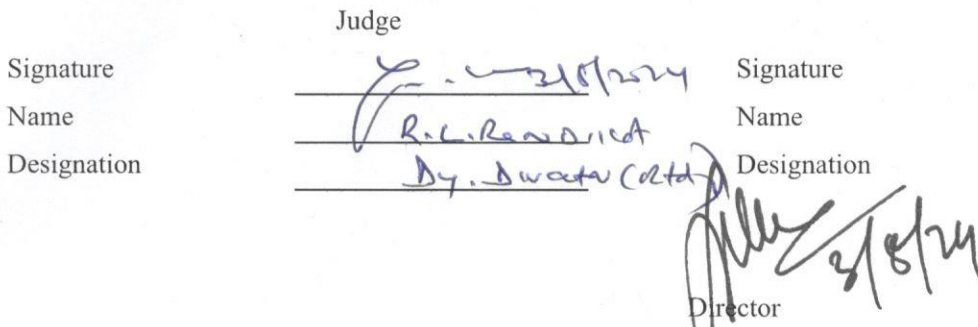 Judge
Signature 3/8/2024 Signature
Name R.L. Name
Designation Dy. Director (Rtd) Designation
3/8/24
Director